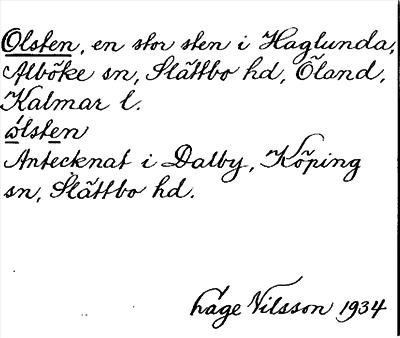 Olsten, en stor sten i Haglunda,
Alböke sn, Slättbo hd, Öland,
Kalmar l.
ólsten
Antecknat i Dalby, Köping
sn, Slättbo hd.
håge Nilsson 1934